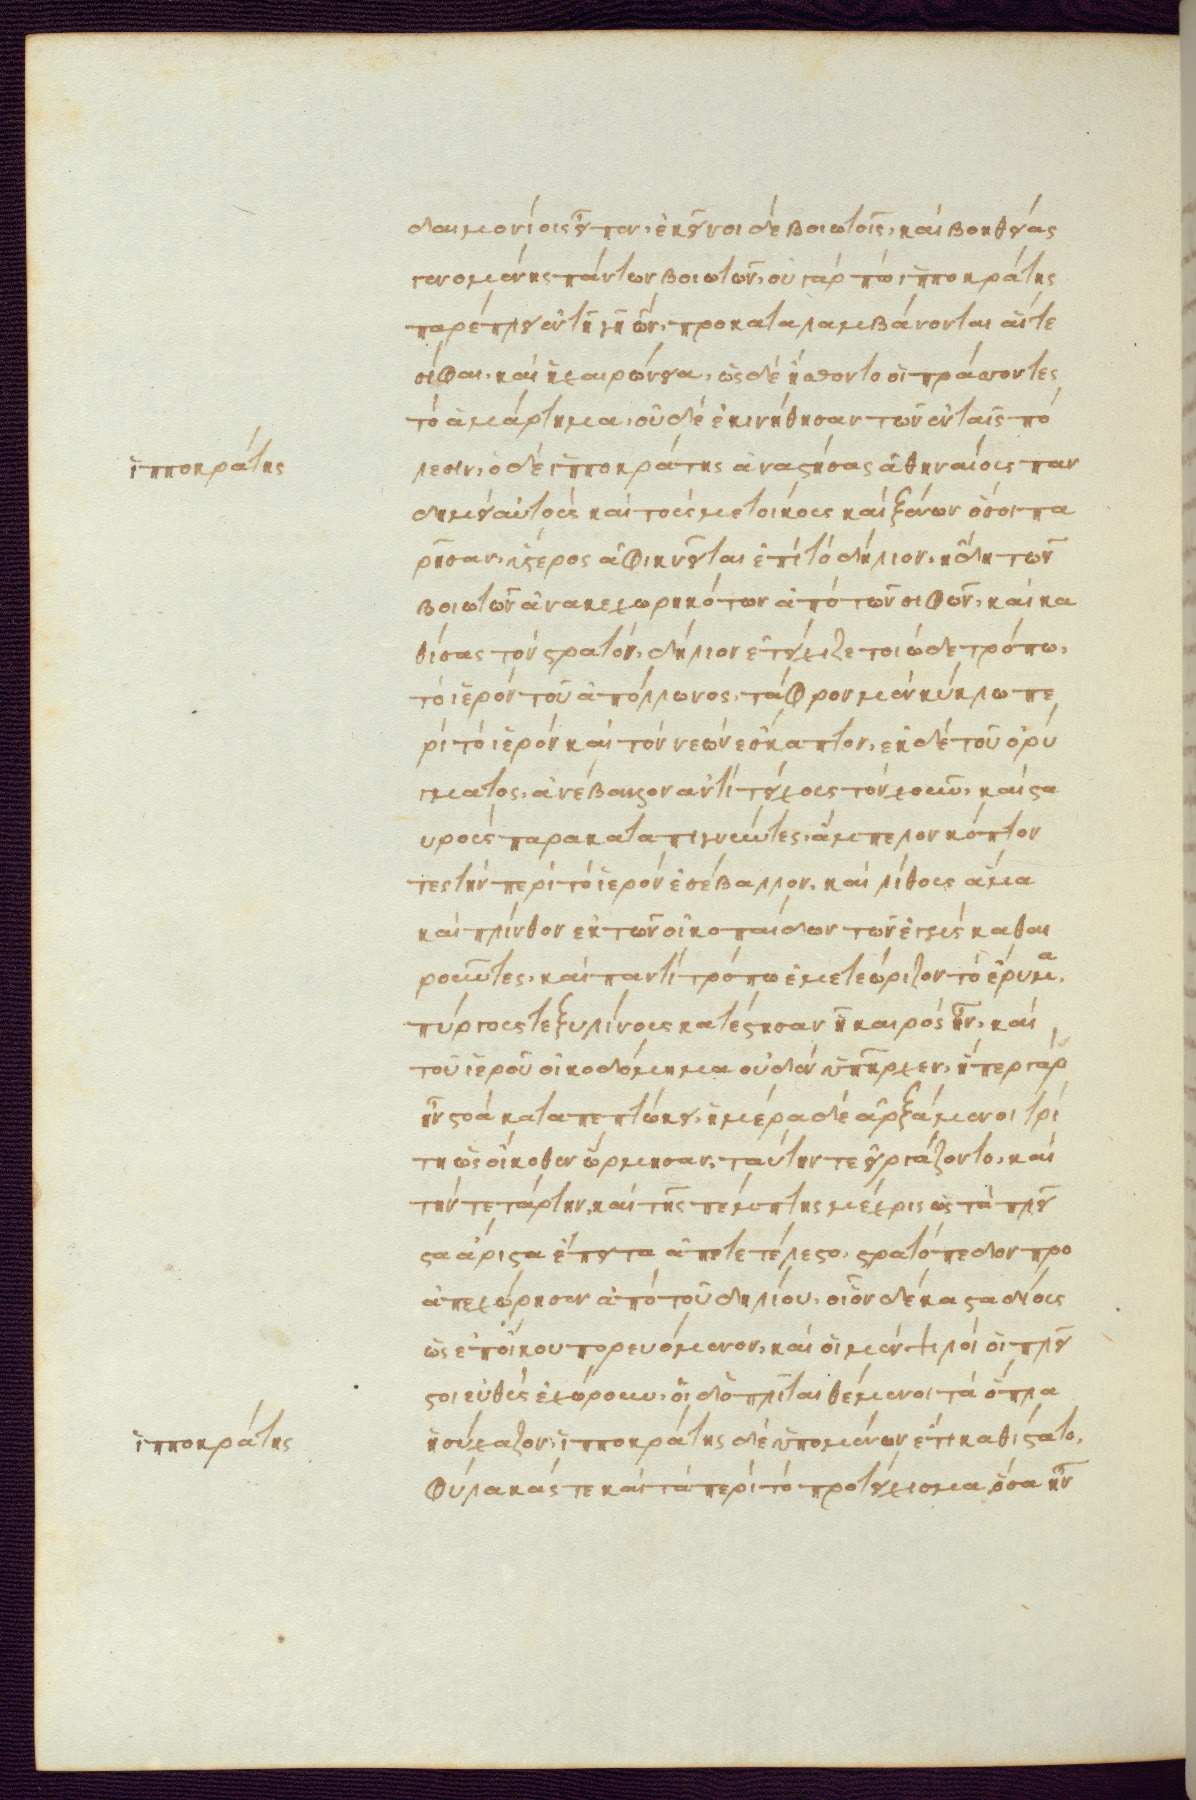 δαιμονίοις εἶπεν, ἐκεῖνοι δὲ βοιωτοῖς, καὶ βοηθείας
γενομένης πάντων βοιωτῶν, οὐ γάρ πω ἱπποκράτης
παρελύπει ἐν τῇ γῇ ὤν, προκαταλαμβάνονται αἵ τε
σίφαι, καὶ ἡ χαιρώνεια, ὡς δὲ ᾔσθοντο οἱ πράσσοντες
τὸ ἁμάρτημα, οὐδὲ ἐκινήθησαν τῶν ἐν ταῖς πό
ἱπποκράτης
λεσιν, ὁ δὲ ἱπποκράτης ἀναστήσας ἀθηναίους παν
δημεὶ αὐτοὺς καὶ τοὺς μετοίκους καὶ ξένων ὅσοι πα
ρῆσαν, ὕστερος ἀφικνεῖται ἐπὶ τὸ δήλιον, ἤδη τῶν
βοιωτῶν ἀνακεχωρηκότων ἀπὸ τῶν σιφῶν, καὶ κα
θίσας τὸν στρατόν, δήλιον ἐτείχιζε τοιῷδε τρόπω,
τὸ ἱερὸν τοῦ ἀπόλλωνος, τάφρον μὲν κύκλω πε
ρὶ τὸ ἱερὸν καὶ τὸν νεὼν ἔσκαπτον, ἐκ δὲ τοῦ ὀρύ
γματος, ἀνέβαλλον ἀντὶ τείχους τὸν χοῦν, καὶ στα
υροὺς παρακαταπηγνύντες, ἄμπελον κόπτον
τες τὴν περὶ τὸ ἱερὸν ἐσέβαλλον, καὶ λίθους ἅμα
καὶ πλίνθον ἐκ τῶν οἰκοπαίδων τῶν ἐγγὺς καθαι
ροῦντες, καὶ παντὶ τρόπω ἐμετεώριζον τὸ ἔρυμα,
πύργους τε ξυλίνους κατέστησαν ᾗ καιρὸς ἦν, καὶ
τοῦ ἱεροῦ οἰκοδόμημα οὐδὲν ὑπῆρχεν, ᾕπερ γὰρ
ἦν στοὰ καταπεπτώκει, ἡμέρα δὲ ἀρξάμενοι τρί
τη ὡς οἴκοθεν ὥρμησαν, ταύτην τε εἰργάζοντο, καὶ
τὴν τετάρτην, καὶ τῆς πέμπτης μέχρις ὡς τὰ πλεῖ
στα ἄριστα ἔπειτα ἀπετετέλεστο, στρατόπεδον προ
απεχώρησεν ἀπὸ τοῦ δηλίου, οἷον δέκα σταδίους
ὡς ἐπ᾽ οἴκου πορευόμενον, καὶ οἱ μὲν ψιλοὶ οἱ πλεῖ
στοι εὐθὺς ἐχώρουν, οἱ δ᾽ ὁπλῖται θέμενοι τὰ ὅπλα
ἱπποκράτης
ἡσύχαζον, ἱπποκράτης δὲ ὑπομένων ἔτι καθίστατο,
φύλακάς τε καὶ τὰ περὶ τὸ προτείχισμα ὅσα ἦν